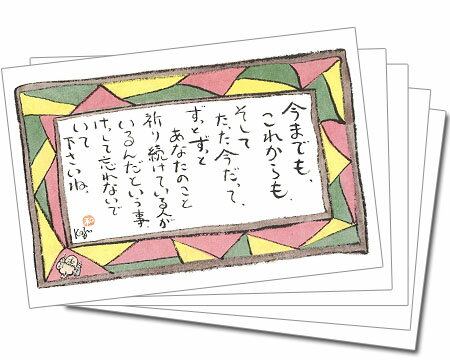 今までも、
これからも、
そして
たった今だって、
ずっとずっと
あなたのこと
祈り続けている人が
いるんだという事、
けっして忘れないで
いて下さいね。